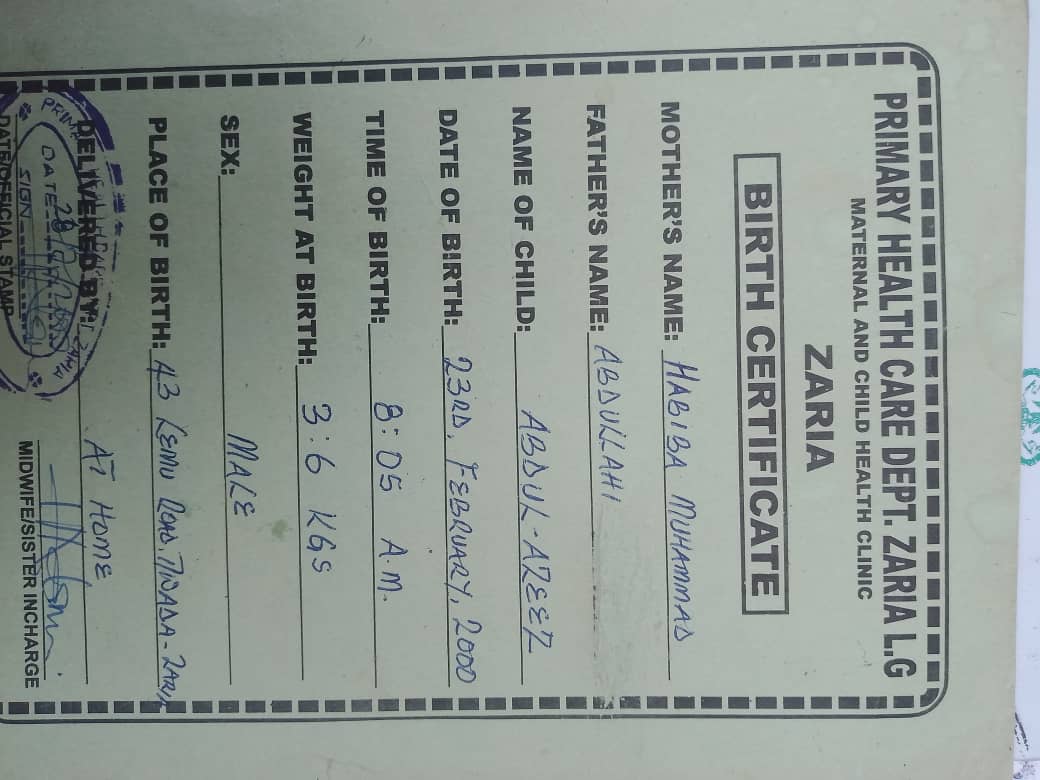 PRIMARY HEALTH CARE DEPT. ZARIA L.G
MATERNAL AND CHILD HEALTH CLINIC
ZARIA
BIRTH CERTIFICATE
MOTHER'S NAME: HABIBA MUHAMMAD
FATHER'S NAME: ABDULLAHI
NAME OF CHILD: ABDUL-AZEEZ
DATE OF BIRTH: 23RD, FEBRUARY, 2000
TIME OF BIRTH: 8:05 A.M.
WEIGHT AT BIRTH: 3:6 KGS
SEX: MALE
PLACE OF BIRTH: 43 LEMU ROAD, ZARIA
DELIVERED BY: AT HOME
DATE
SIGN
DATE/OFFICIAL STAMP
MIDWIFE/SISTER INCHARGE